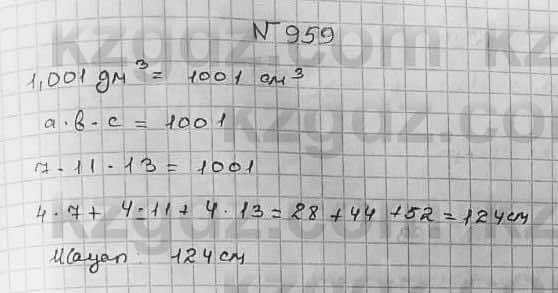 № 959
1,001 дм³ = 1001 см³
a · b · c = 1001
7 · 11 · 13 = 1001
4 · 7 + 4 · 11 + 4 · 13 = 28 + 44 + 52 = 124 см
Жауап 124 см
kzgdz.com